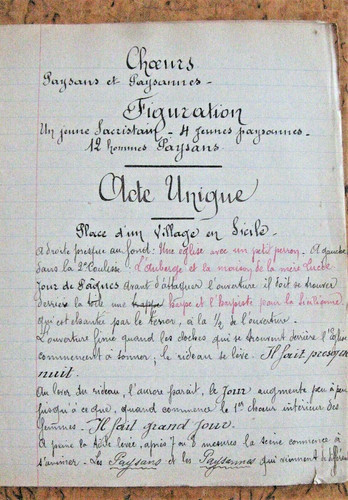 Chœurs
Paysans et Paysannes -
Figuration
Un jeune Sacristain - 4 jeunes paysannes -
12 hommes Paysans
Acte Unique
Place d'un Village en Sicile -
A droite presque au fond : Une église avec un petit perron. A gauche
dans la 2e Coulisse : L'auberge et la maison de la mère Lucia
Jour de Pâques Avant d'attaquer l'ouverture il doit se trouver
derrière la toile une Harpe et l'Harpiste pour la Sicilienne
qui est chantée par le ténor, à la 1/2 de l'ouverture.
L'ouverture finie quand les cloches qui se trouvent derrière l'Eglise
commencent à sonner ; le rideau se lève - Il fait presque
nuit.
Au lever du rideau, l'aurore paraît, le Jour augmente peu à peu
jusqu'à ce que, quand commence le 1er chœur intérieur des
femmes - Il fait grand jour.
A peine la levée, après 7 à 8 mesures la scène commence à
s'animer - Les Paysans et les Paysannes qui viennent